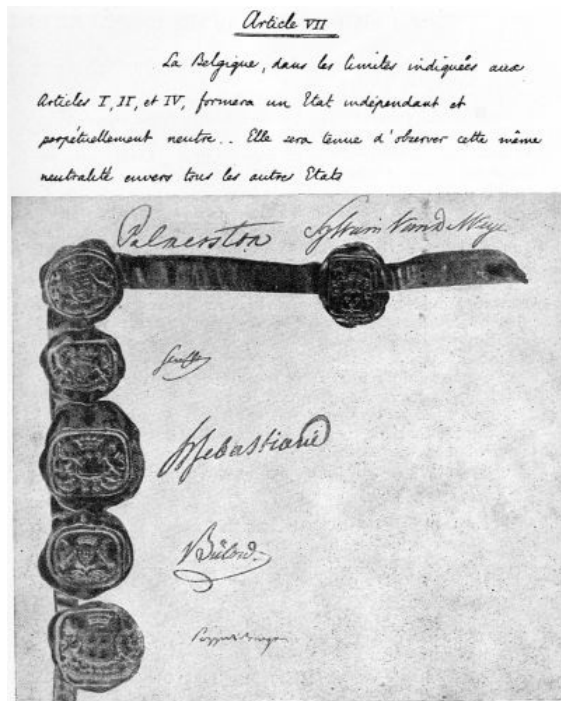 Article VII
La Belgique, dans les limites indiquées aux
Articles I, II, et IV, formera un Etat indépendant et
perpétuellement neutre.. Elle sera tenue d'observer cette même
neutralité envers tous les autres Etats
Palmerston Sylvain Van de Weyer
Senfft
H Sebastiani
Bülow